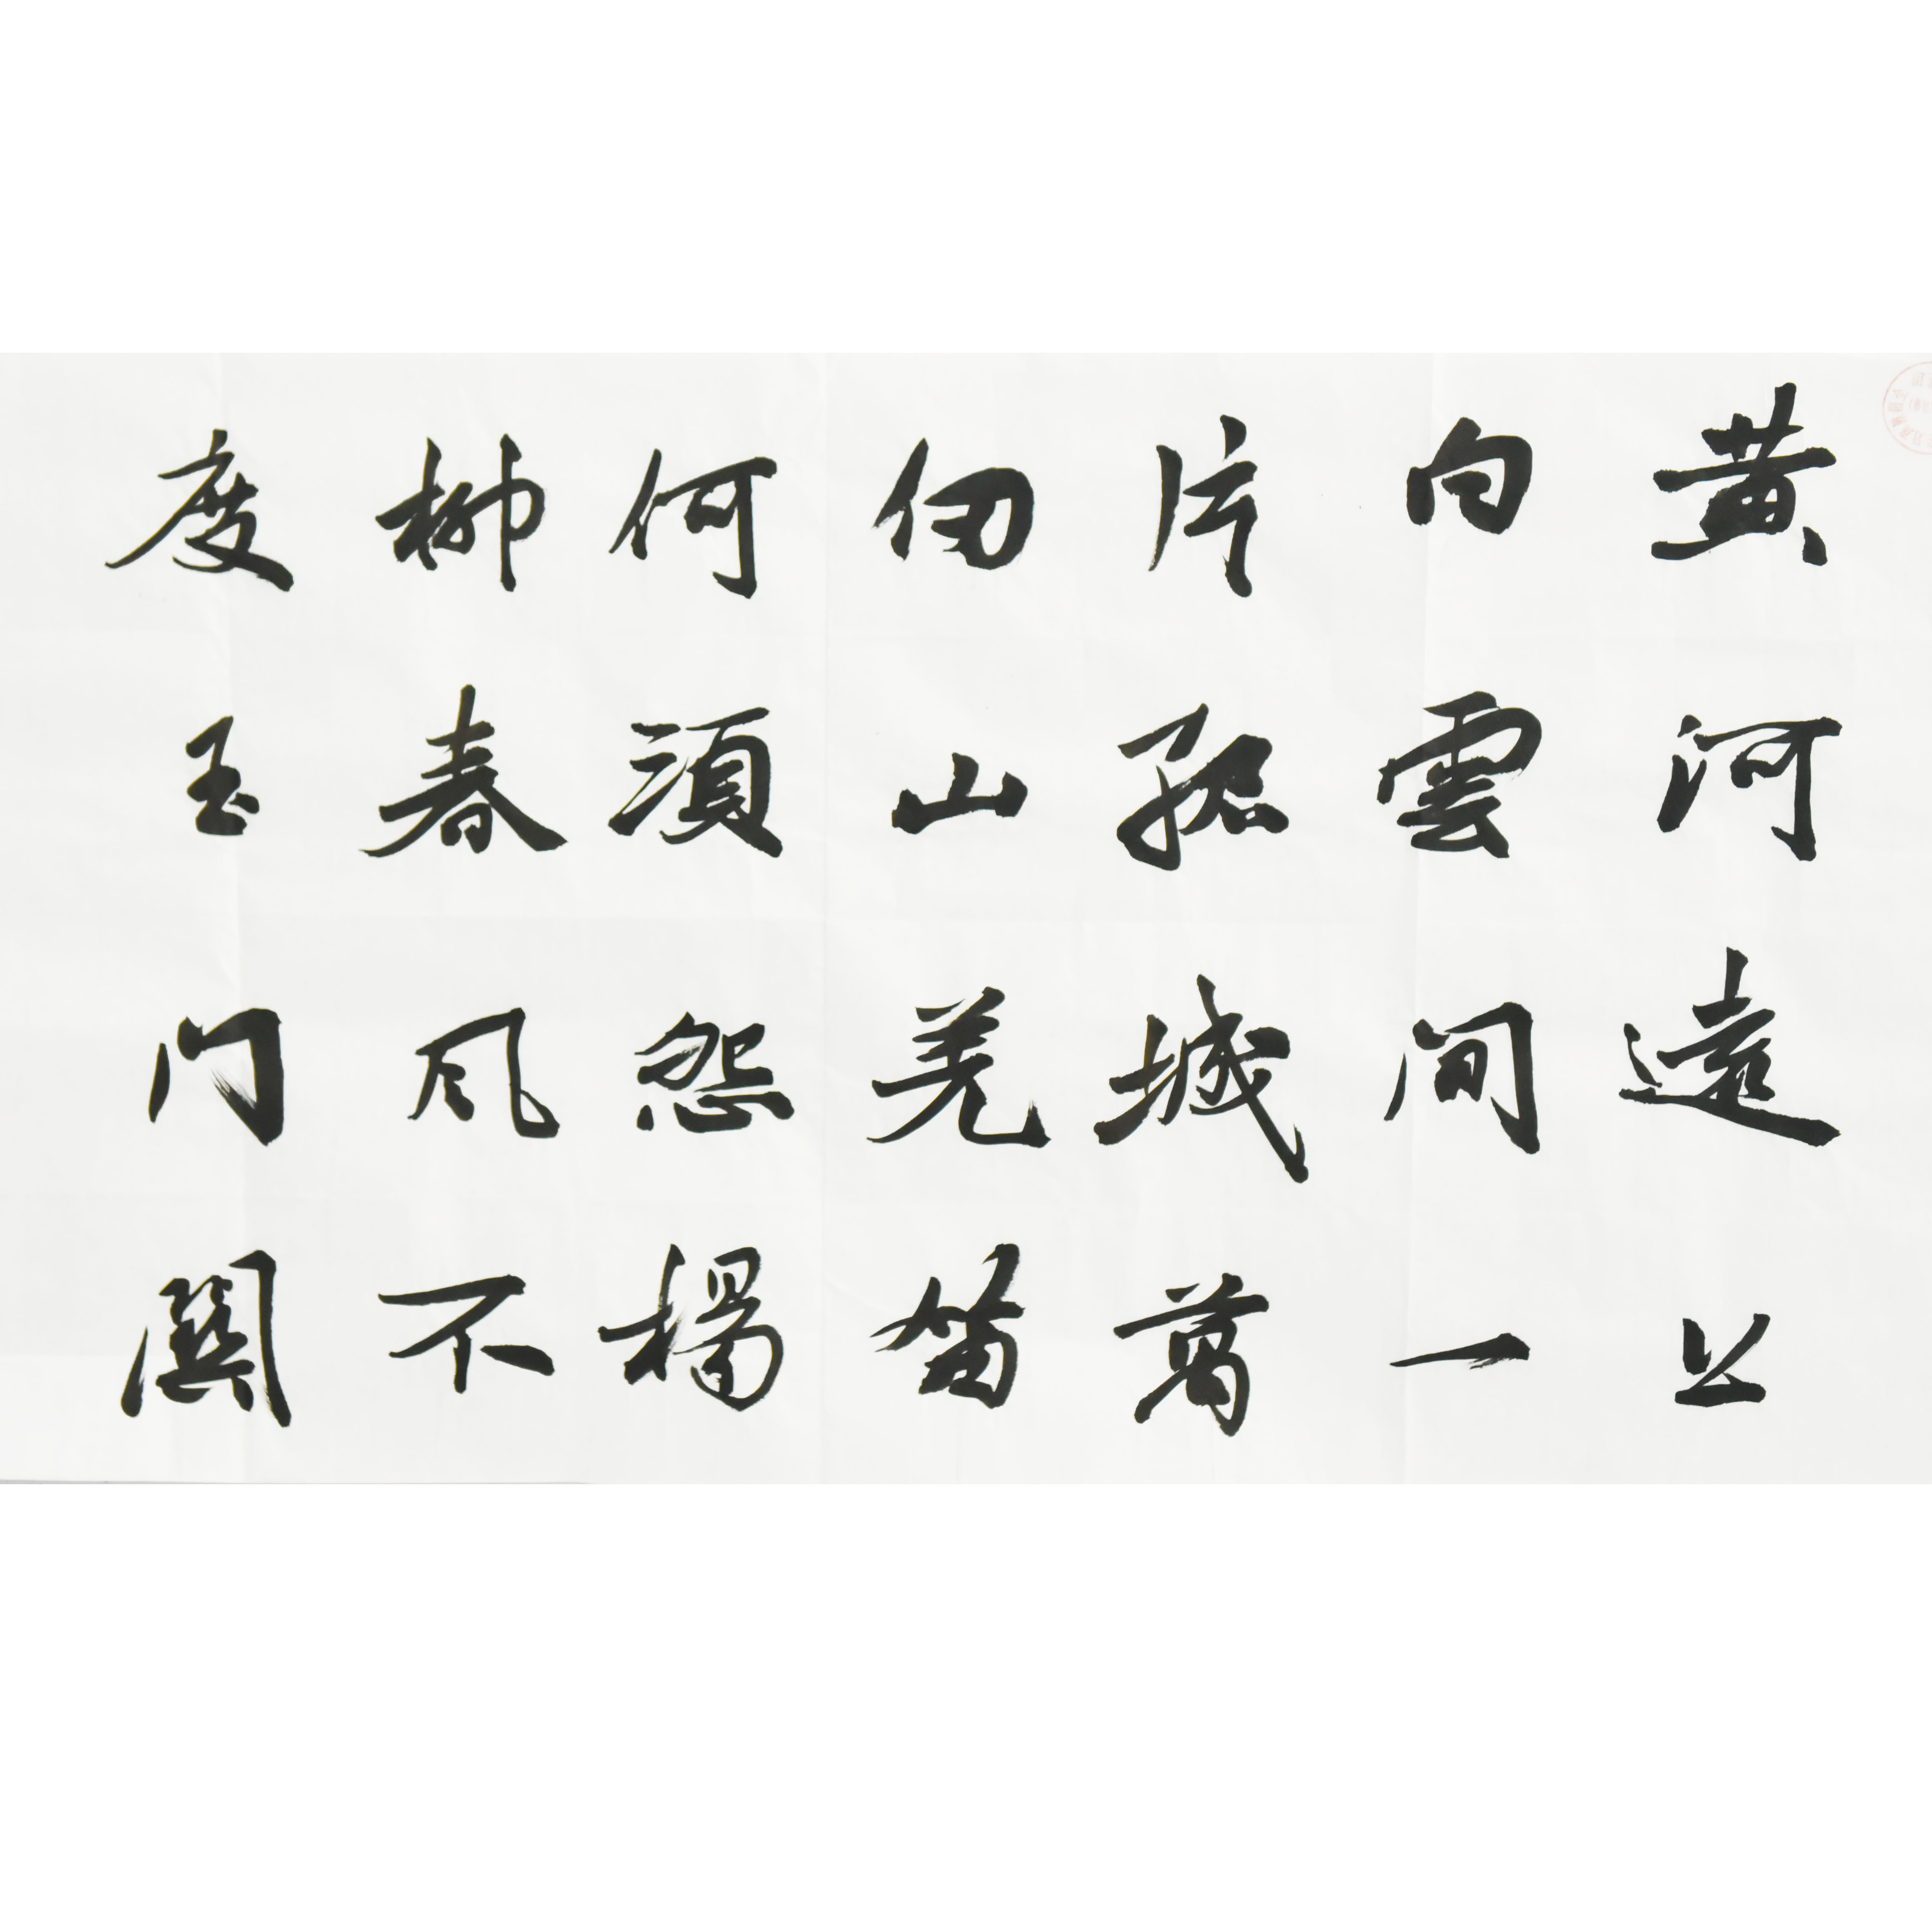 黄河遠上
白雲間一
片孤城萬
仞山羌笛
何須怨楊
柳春風不
度玉門關